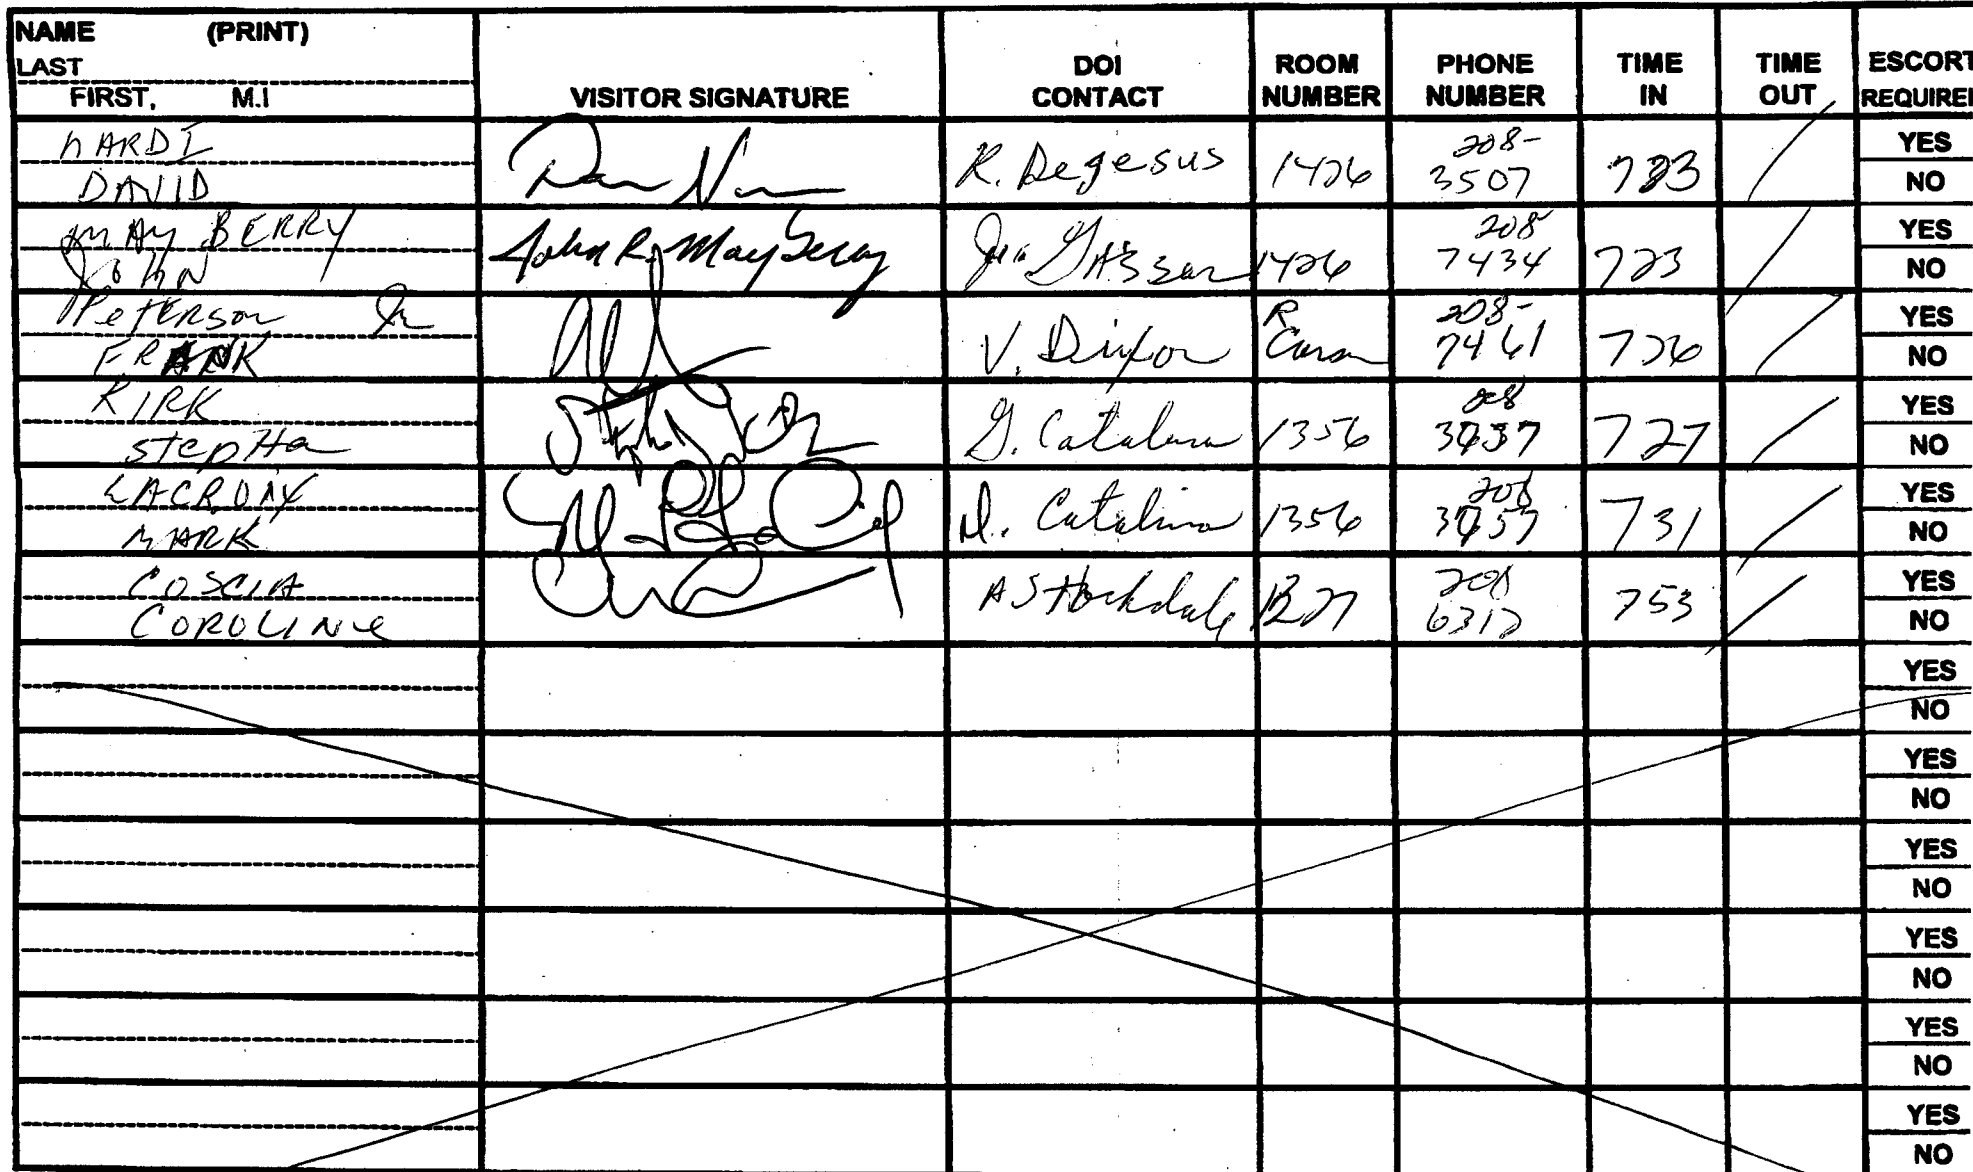 NAME (PRINT)
LAST
FIRST, M.I
VISITOR SIGNATURE
DOI
CONTACT
ROOM
NUMBER
PHONE
NUMBER
TIME
IN
TIME
OUT
ESCORT
REQUIRE
NARDI
DAVID
R. Degesus
1426
208-
3507
723
YES
NO
MAY BERRY
JOHN
John R. Mayberry
1426
208
7434
723
YES
NO
Peterson Jr
FRANK
V. Dixon
R
208-
7461
726
YES
NO
KIRK
Stepha
G. Catalina
1356
208
727
YES
NO
MARK
Catalina
1356
208
731
YES
NO
COSCIA
COROLINE
A Stockdale
208
6312
753
YES
NO
YES
NO
YES
NO
YES
NO
YES
NO
YES
NO
YES
NO